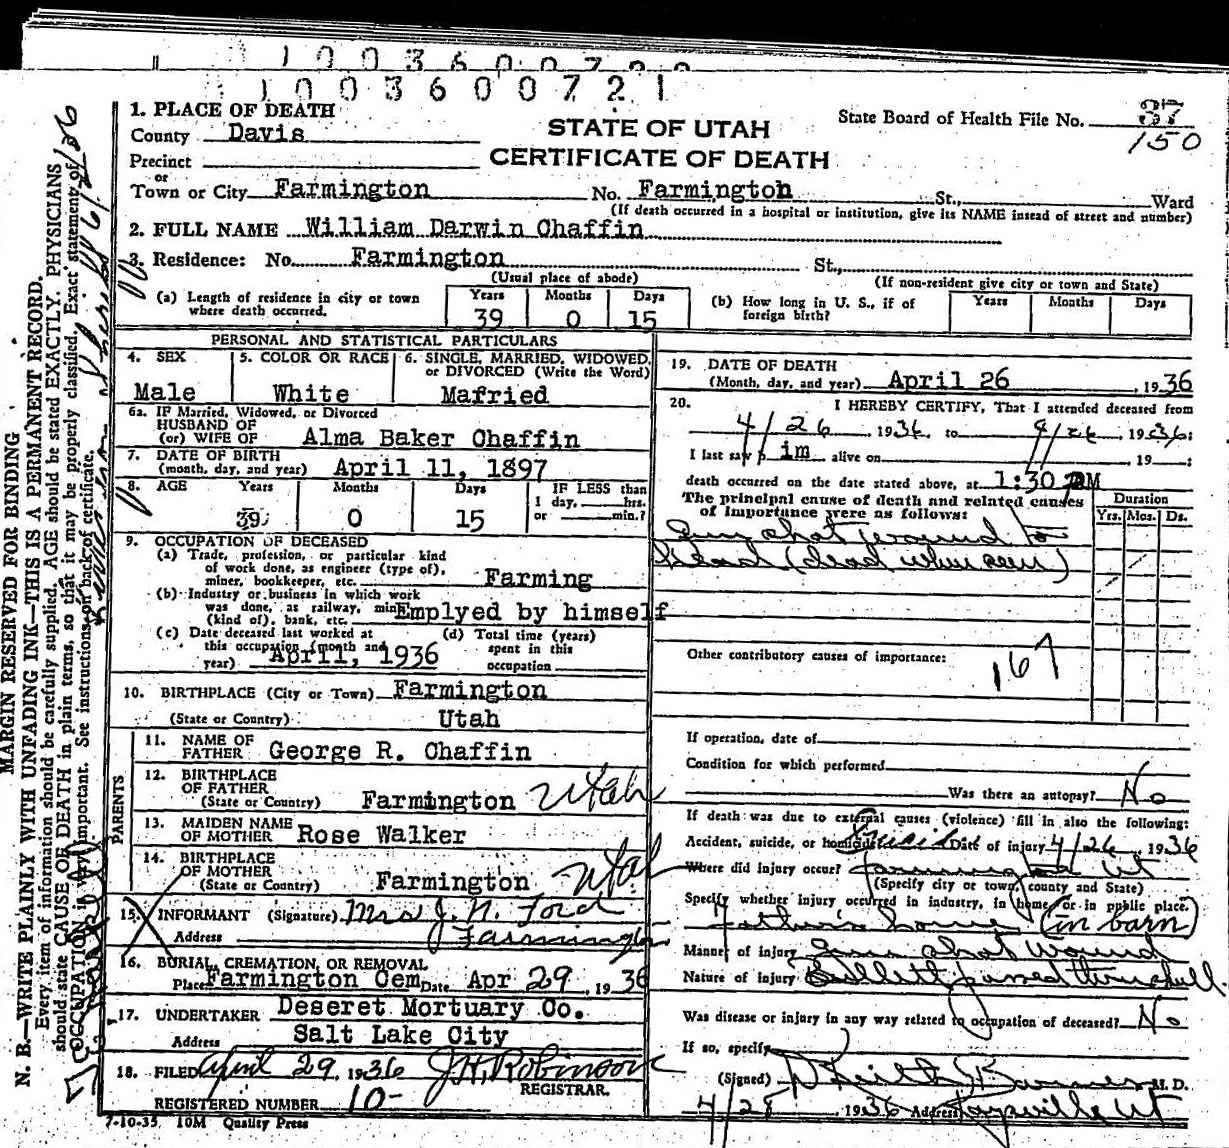 1003600720
1003600721
1. PLACE OF DEATH
County Davis
STATE OF UTAH
CERTIFICATE OF DEATH
State Board of Health File No. 37
150
Precinct
or
Town or City Farmington No. Farmington St., Ward
(If death occurred in a hospital or institution, give its NAME insead of street and number)
2. FULL NAME William Darwin Chaffin
3. Residence: No. Farmington St.,
(Usual place of abode) (If non-resident give city or town and State)
(a) Length of residence in city or town where death occurred. Years 39 Months 0 Days 15
(b) How long in U. S., if of foreign birth? Years Months Days
PERSONAL AND STATISTICAL PARTICULARS
4. SEX Male
5. COLOR OR RACE White
6. SINGLE, MARRIED, WIDOWED, or DIVORCED (Write the Word) Mafried
6a. IF Married, Widowed, or Divorced
HUSBAND OF
(or) WIFE OF Alma Baker Chaffin
7. DATE OF BIRTH
(month, day, and year) April 11, 1897
8. AGE Years 39 Months 0 Days 15
IF LESS than
1 day, hrs.
or min.?
9. OCCUPATION OF DECEASED
(a) Trade, profession, or particular kind
of work done, as engineer (type of),
miner, bookkeeper, etc. Farming
(b) Industry or business in which work
was done, as railway, mine
(kind of), bank, etc. Emplyed by himself
(c) Date deceased last worked at
this occupation (month and
year) April, 1936
(d) Total time (years)
spent in this
occupation
10. BIRTHPLACE (City or Town) Farmington
(State or Country) Utah
PARENTS
11. NAME OF
FATHER George R. Chaffin
12. BIRTHPLACE
OF FATHER
(State or Country) Farmington Utah
13. MAIDEN NAME
OF MOTHER Rose Walker
14. BIRTHPLACE
OF MOTHER
(State or Country) Farmington Utah
15. INFORMANT (Signature) Mrs J. N. Ford
Address Farmington
16. BURIAL, CREMATION, OR REMOVAL
Place Farmington Cem Date Apr 29, 1936
17. UNDERTAKER Deseret Mortuary Co.
Address Salt Lake City
18. FILED April 29, 1936 J.H. Robinson
REGISTRAR.
REGISTERED NUMBER 10-
7-10-35 10M Quality Press
19. DATE OF DEATH
(Month, day, and year) April 26, 1936
20. I HEREBY CERTIFY, That I attended deceased from
4/26 1936, to 4/26, 1936;
I last saw him alive on , 19 ;
death occurred on the date stated above, at 1:30 PM
The principal cause of death and related causes
of importance were as follows:
Duration
Yrs. Mos. Ds.
Gun shot wound to
Head (dead when seen)
Other contributory causes of importance:
167
If operation, date of
Condition for which performed
Was there an autopsy? No
If death was due to external causes (violence) fill in also the following:
Accident, suicide, or homicide Suicide Date of injury 4/26, 1936
Where did injury occur? Farmington Ut
(Specify city or town, county and State)
Specify whether injury occurred in industry, in home, or in public place.
Father's home (in barn)
Manner of injury Gun shot wound
Nature of injury Bullett passed thru skull.
Was disease or injury in any way related to occupation of deceased? No
If so, specify
(Signed) D Keith Barnes M. D.
4/28 1936 Address Kaysville Ut
MARGIN RESERVED FOR BINDING
N. B.—WRITE PLAINLY WITH UNFADING INK—THIS IS A PERMANENT RECORD.
Every item of information should be carefully supplied. AGE should be stated EXACTLY. PHYSICIANS
should state CAUSE OF DEATH in plain terms, so that it may be properly classified. Exact statement of
OCCUPATION is very important. See instructions on back of certificate.